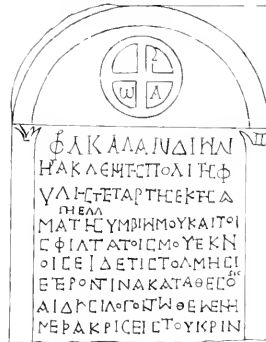 Ϲ
Ѡ Α
ΦΛΚΑΛΑΝΔΙΗΝ
ΗΑΚΛΕΗΙΤΗϹΠΟΛΙΤΗϹΦ
ΥΛΗϹΤΕΤΑΡΤΗϹΕΚΗϹΑ
ΓΗΕΛΛ
ΜΑΤΗϹΥΜΒΙΗΜΟΥΚΑΙΤΟΙ
ϹΦΙΛΤΑΤΟΙϹΜΟΥΕΚΝ
ΟΙϹΕΙΔΕΤΙϹΤΟΛΜΗϹΙ
ΕΤΕΡΟΝΤΙΝΑΚΑΤΑΘΕϹΘ
sic
ΑΙΔΗϹΙΛΟΓΟΝΤѠΘΕѠΕΝΗ
ΜΕΡΑΚΡΙϹΕΙϹΤΟΥΚΡΙΝ